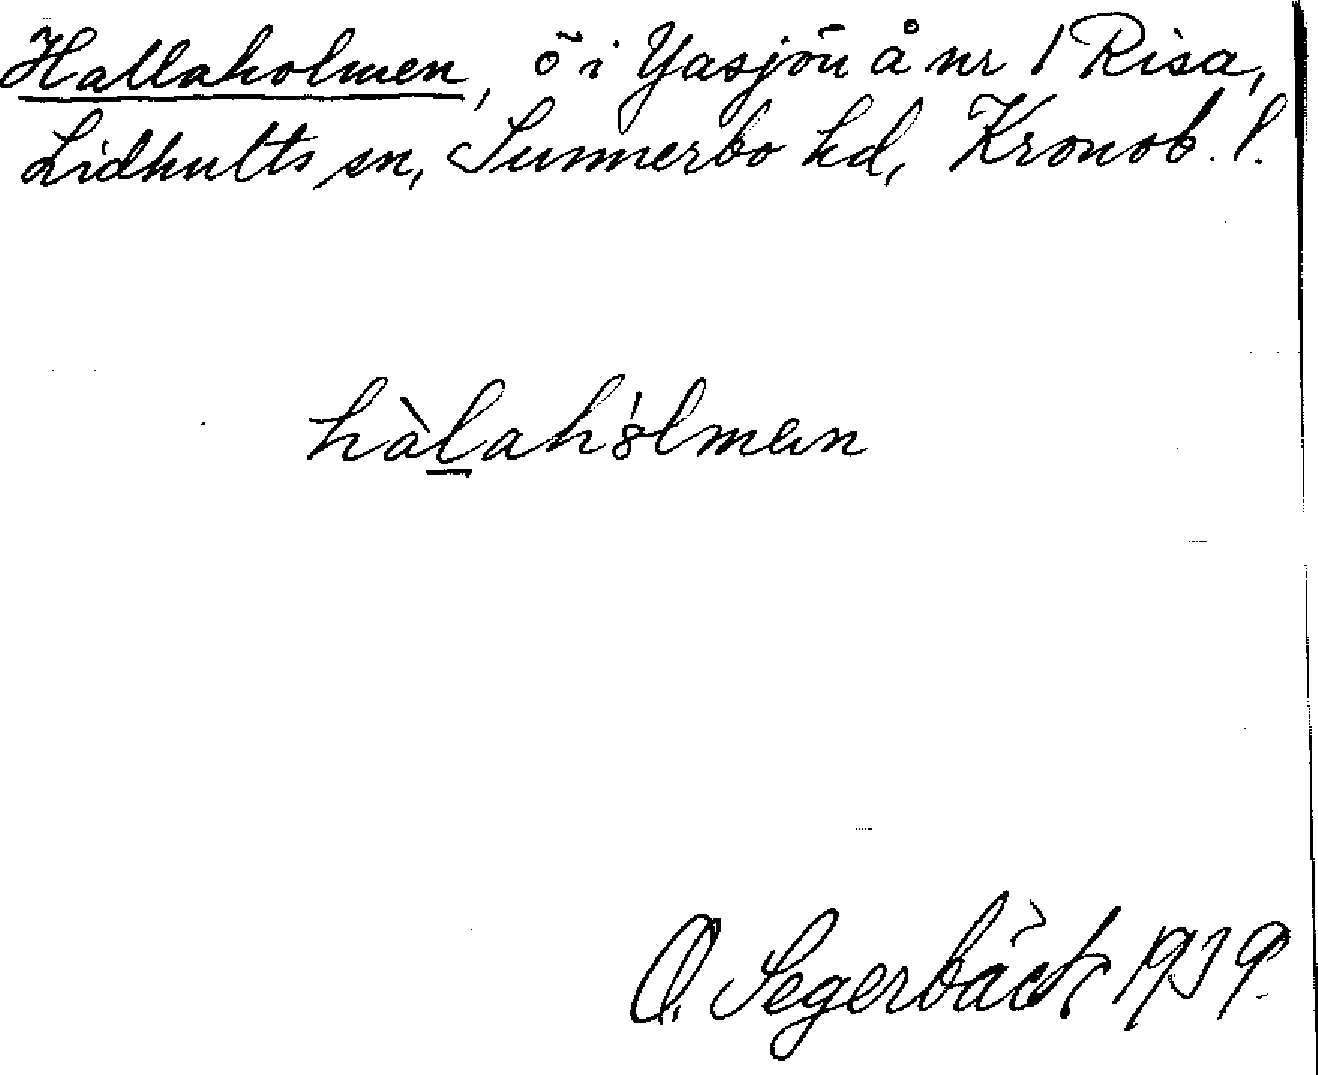 Hallaholmen, ö i Yasjön å nr 1 Risa,
Lidhults sn, Sunnerbo hd, Kronob. l.
hàlahólmən
O. Segerbäck 1939.